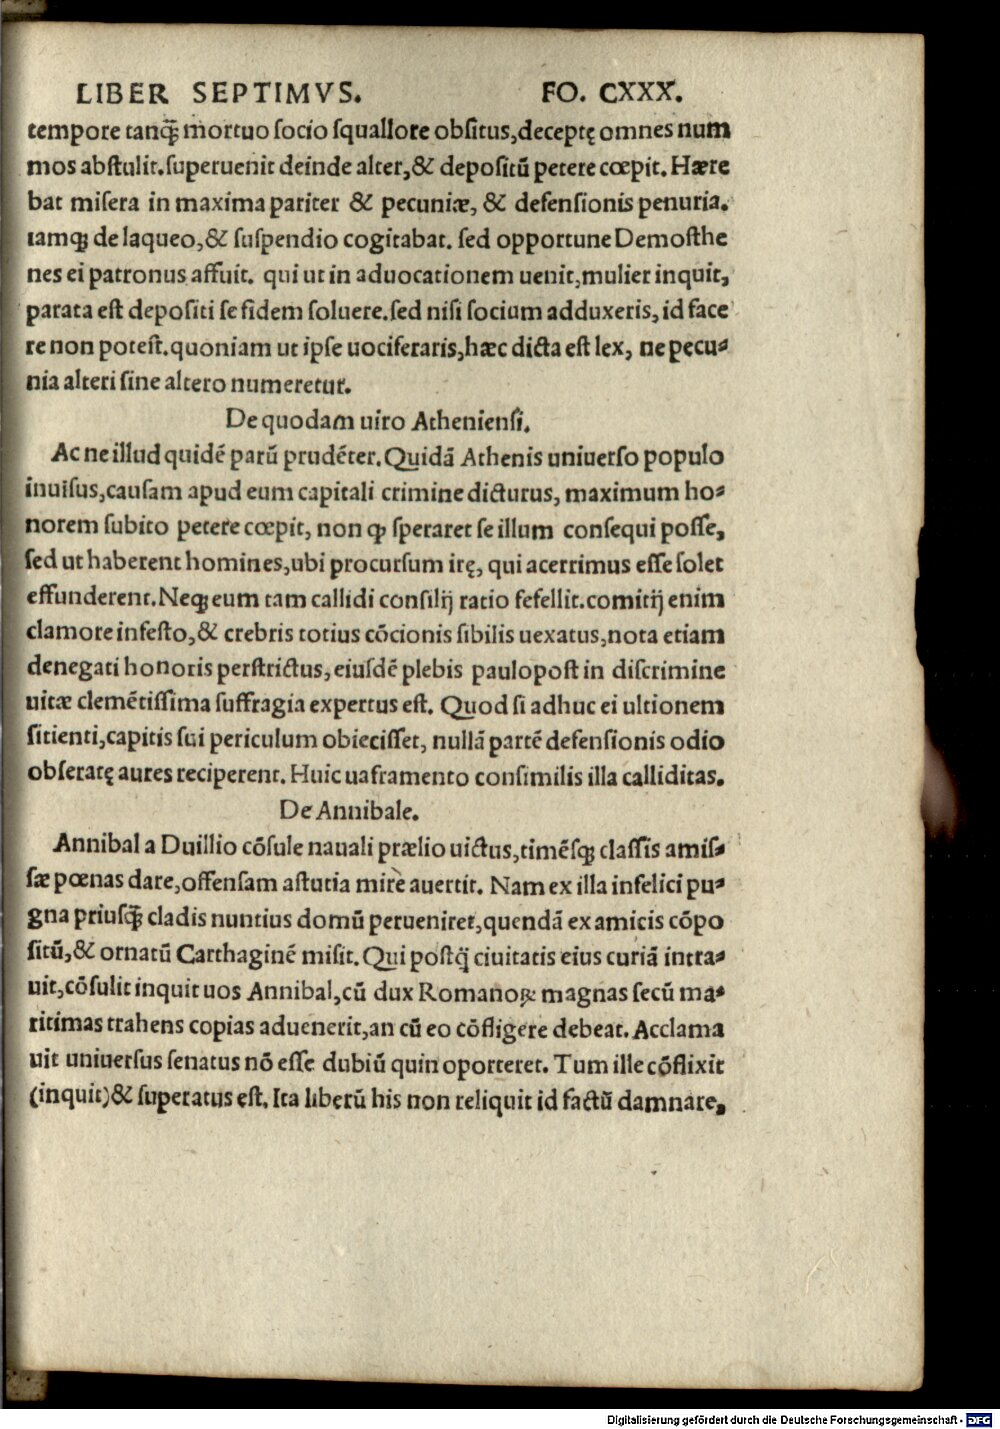 LIBER SEPTIMVS. FO. CXXX.
tempore tanq̃ mortuo socio squallore obsitus, deceptę omnes num
mos abstulit. superuenit deinde alter, & depositũ petere cœpit. Hære
bat misera in maxima pariter & pecuniæ, & defensionis penuria.
iamq; de laqueo, & suspendio cogitabat. sed opportune Demosthe
nes ei patronus affuit. qui ut in aduocationem uenit, mulier inquit,
parata est depositi se fidem soluere. sed nisi socium adduxeris, id face
re non potest. quoniam ut ipse uociferaris, hæc dicta est lex, ne pecu⸗
nia alteri sine altero numeretur.
De quodam uiro Atheniensi.
Ac ne illud quidẽ parũ prudẽter. Quidã Athenis uniuerso populo
inuisus, causam apud eum capitali crimine dicturus, maximum ho⸗
norem subito petere cœpit, non ꝙ speraret se illum consequi posse,
sed ut haberent homines, ubi procursum irę, qui acerrimus esse solet
effunderent. Neq; eum tam callidi consilij ratio fefellit. comitij enim
clamore infesto, & crebris totius cõcionis sibilis uexatus, nota etiam
denegati honoris perstrictus, eiusdẽ plebis paulopost in discrimine
uitæ clemẽtissima suffragia expertus est. Quod si adhuc ei ultionem
sitienti, capitis sui periculum obiecisset, nullã partẽ defensionis odio
obseratę aures reciperent. Huic uaframento consimilis illa calliditas.
De Annibale.
Annibal a Duillio cõsule nauali prælio uictus, timẽsq; classis amis⸗
sæ pœnas dare, offensam astutia mire auertit. Nam ex illa infelici pu⸗
gna priusq̃ cladis nuntius domũ perueniret, quendã ex amicis cõpo
sitũ, & ornatũ Carthaginẽ misit. Qui postq̃ ciuitatis eius curiã intra⸗
uit, cõsulit inquit uos Annibal, cũ dux Romanoꝝ magnas secũ ma⸗
ritimas trahens copias aduenerit, an cũ eo cõfligere debeat. Acclama
uit uniuersus senatus nõ esse dubiũ quin oporteret. Tum ille cõflixit
(inquit) & superatus est. Ita liberũ his non reliquit id factũ damnare,
Digitalisierung gefördert durch die Deutsche Forschungsgemeinschaft - DFG